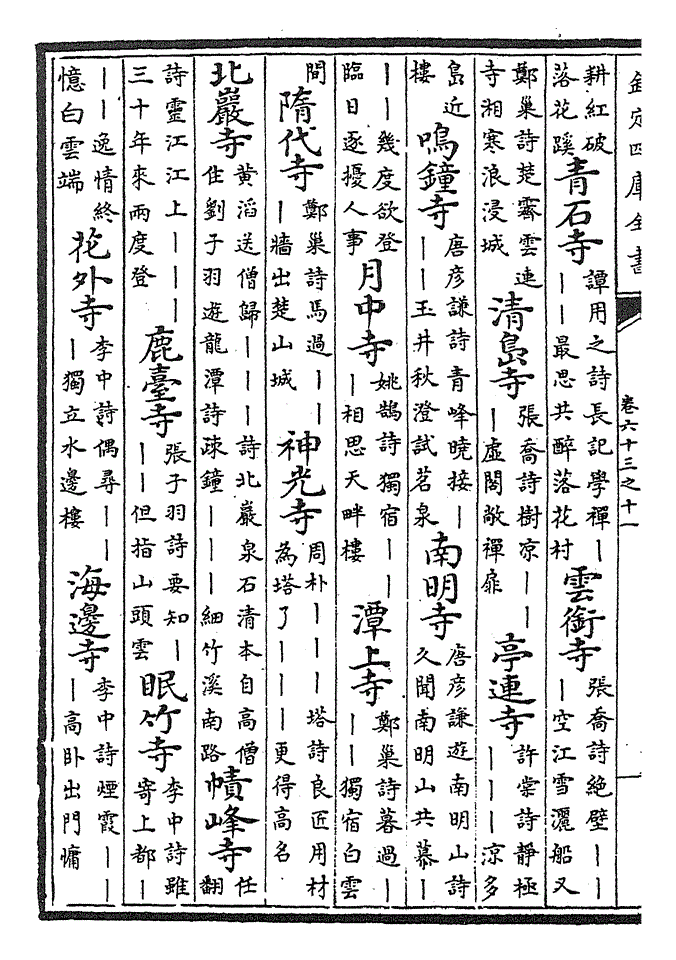 欽定四庫全書
卷六十三之十一
耕紅破
落花蹊
青石寺
譚用之詩長記學禪―
――最思共醉落花村
雲銜寺
張喬詩絕壁――
―空江雪灑船又
鄭巢詩楚霽雲連
寺湘寒浪浸城
清島寺
張喬詩樹凉――
―虛閣敞禪扉
亭連寺
許棠詩靜極
―――凉多
島近
樓
鳴鐘寺
唐彦謙詩青峰曉接―
――玉井秋澄試茗泉
南明寺
唐彦謙遊南明山詩
久聞南明山共慕―
――幾度欲登
臨日逐擾人事
月中寺
姚鵠詩獨宿――
―相思天畔樓
潭上寺
鄭巢詩暮過―
――獨宿白雲
間
隋代寺
鄭巢詩馬過――
―牆出楚山城
神光寺
周朴―――塔詩良匠用材
為塔了―――更得高名
北巖寺
黃滔送僧歸―――詩北巖泉石清本自高僧
住劉子羽遊龍潭詩疎鐘―――細竹溪南路
幘峰寺
任
翻
詩靈江江上―――
三十年來兩度登
鹿臺寺
張子羽詩要知―
――但指山頭雲
眠竹寺
李中詩雖
寄上都―
――逸情終
憶白雲端
花外寺
李中詩偶尋――
―獨立水邊樓
海邊寺
李中詩煙霞――
―高卧出門慵